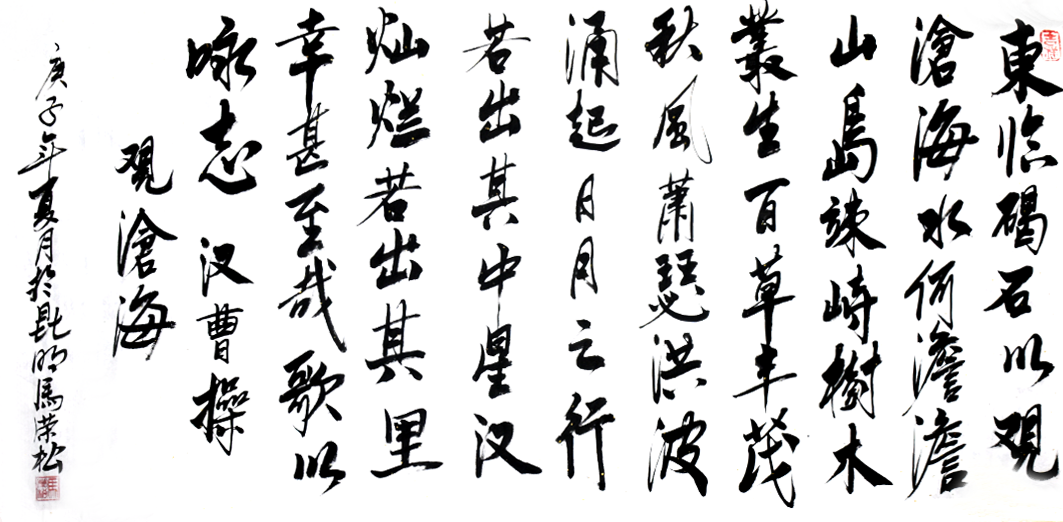 東临碣石以观
滄海水何澹澹
山島竦峙樹木
叢生百草丰茂
秋風蕭瑟洪波
涌起日月之行
若出其中星汉
灿烂若出其里
幸甚至哉歌以
咏志 汉曹操
观滄海
庚子年夏月於昆明馬荣松